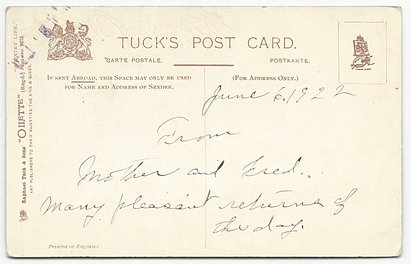 TUCK'S POST CARD.
CARTE POSTALE. POSTKARTE.
IF SENT ABROAD, THIS SPACE MAY ONLY BE USED
FOR NAME AND ADDRESS OF SENDER.
(FOR ADDRESS ONLY.)
June 6, 1922
From
Mother and Fred..
Many pleasant returns of
the day.
Printed in England.
Raphael Tuck & Sons' "OILETTE" [Regd.]
ART PUBLISHERS TO THEIR MAJESTIES THE KING & QUEEN.